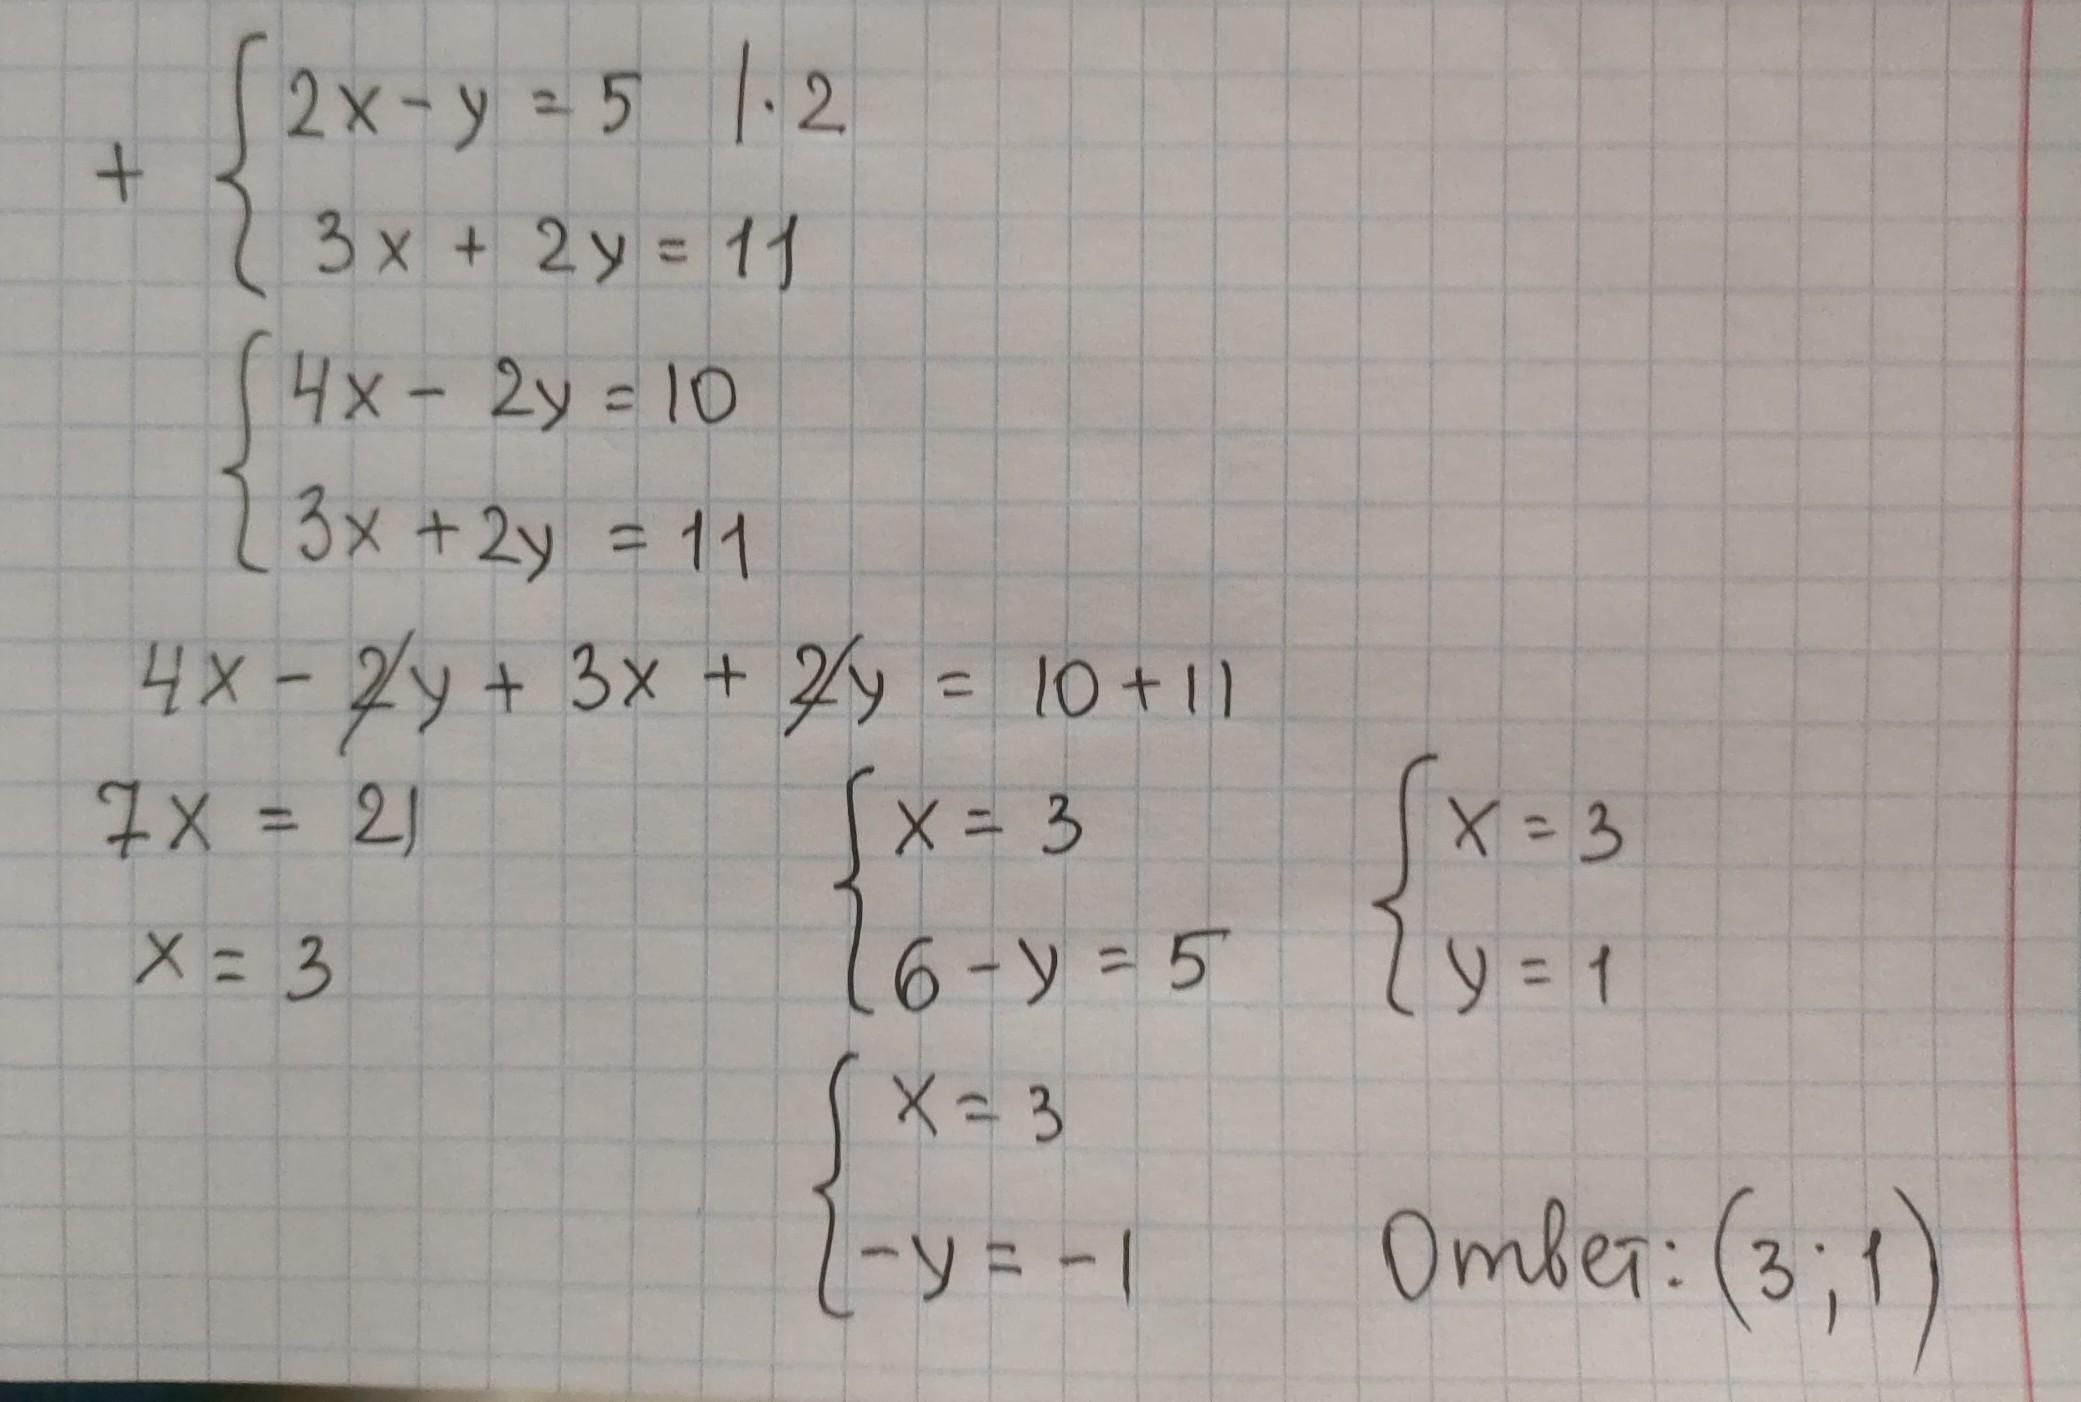 + { 2x - y = 5 | · 2
3x + 2y = 11
{ 4x - 2y = 10
3x + 2y = 11
4x - 2y + 3x + 2y = 10 + 11
7x = 21
x = 3
{ x = 3
6 - y = 5
{ x = 3
-y = -1
{ x = 3
y = 1
Ответ: (3; 1)